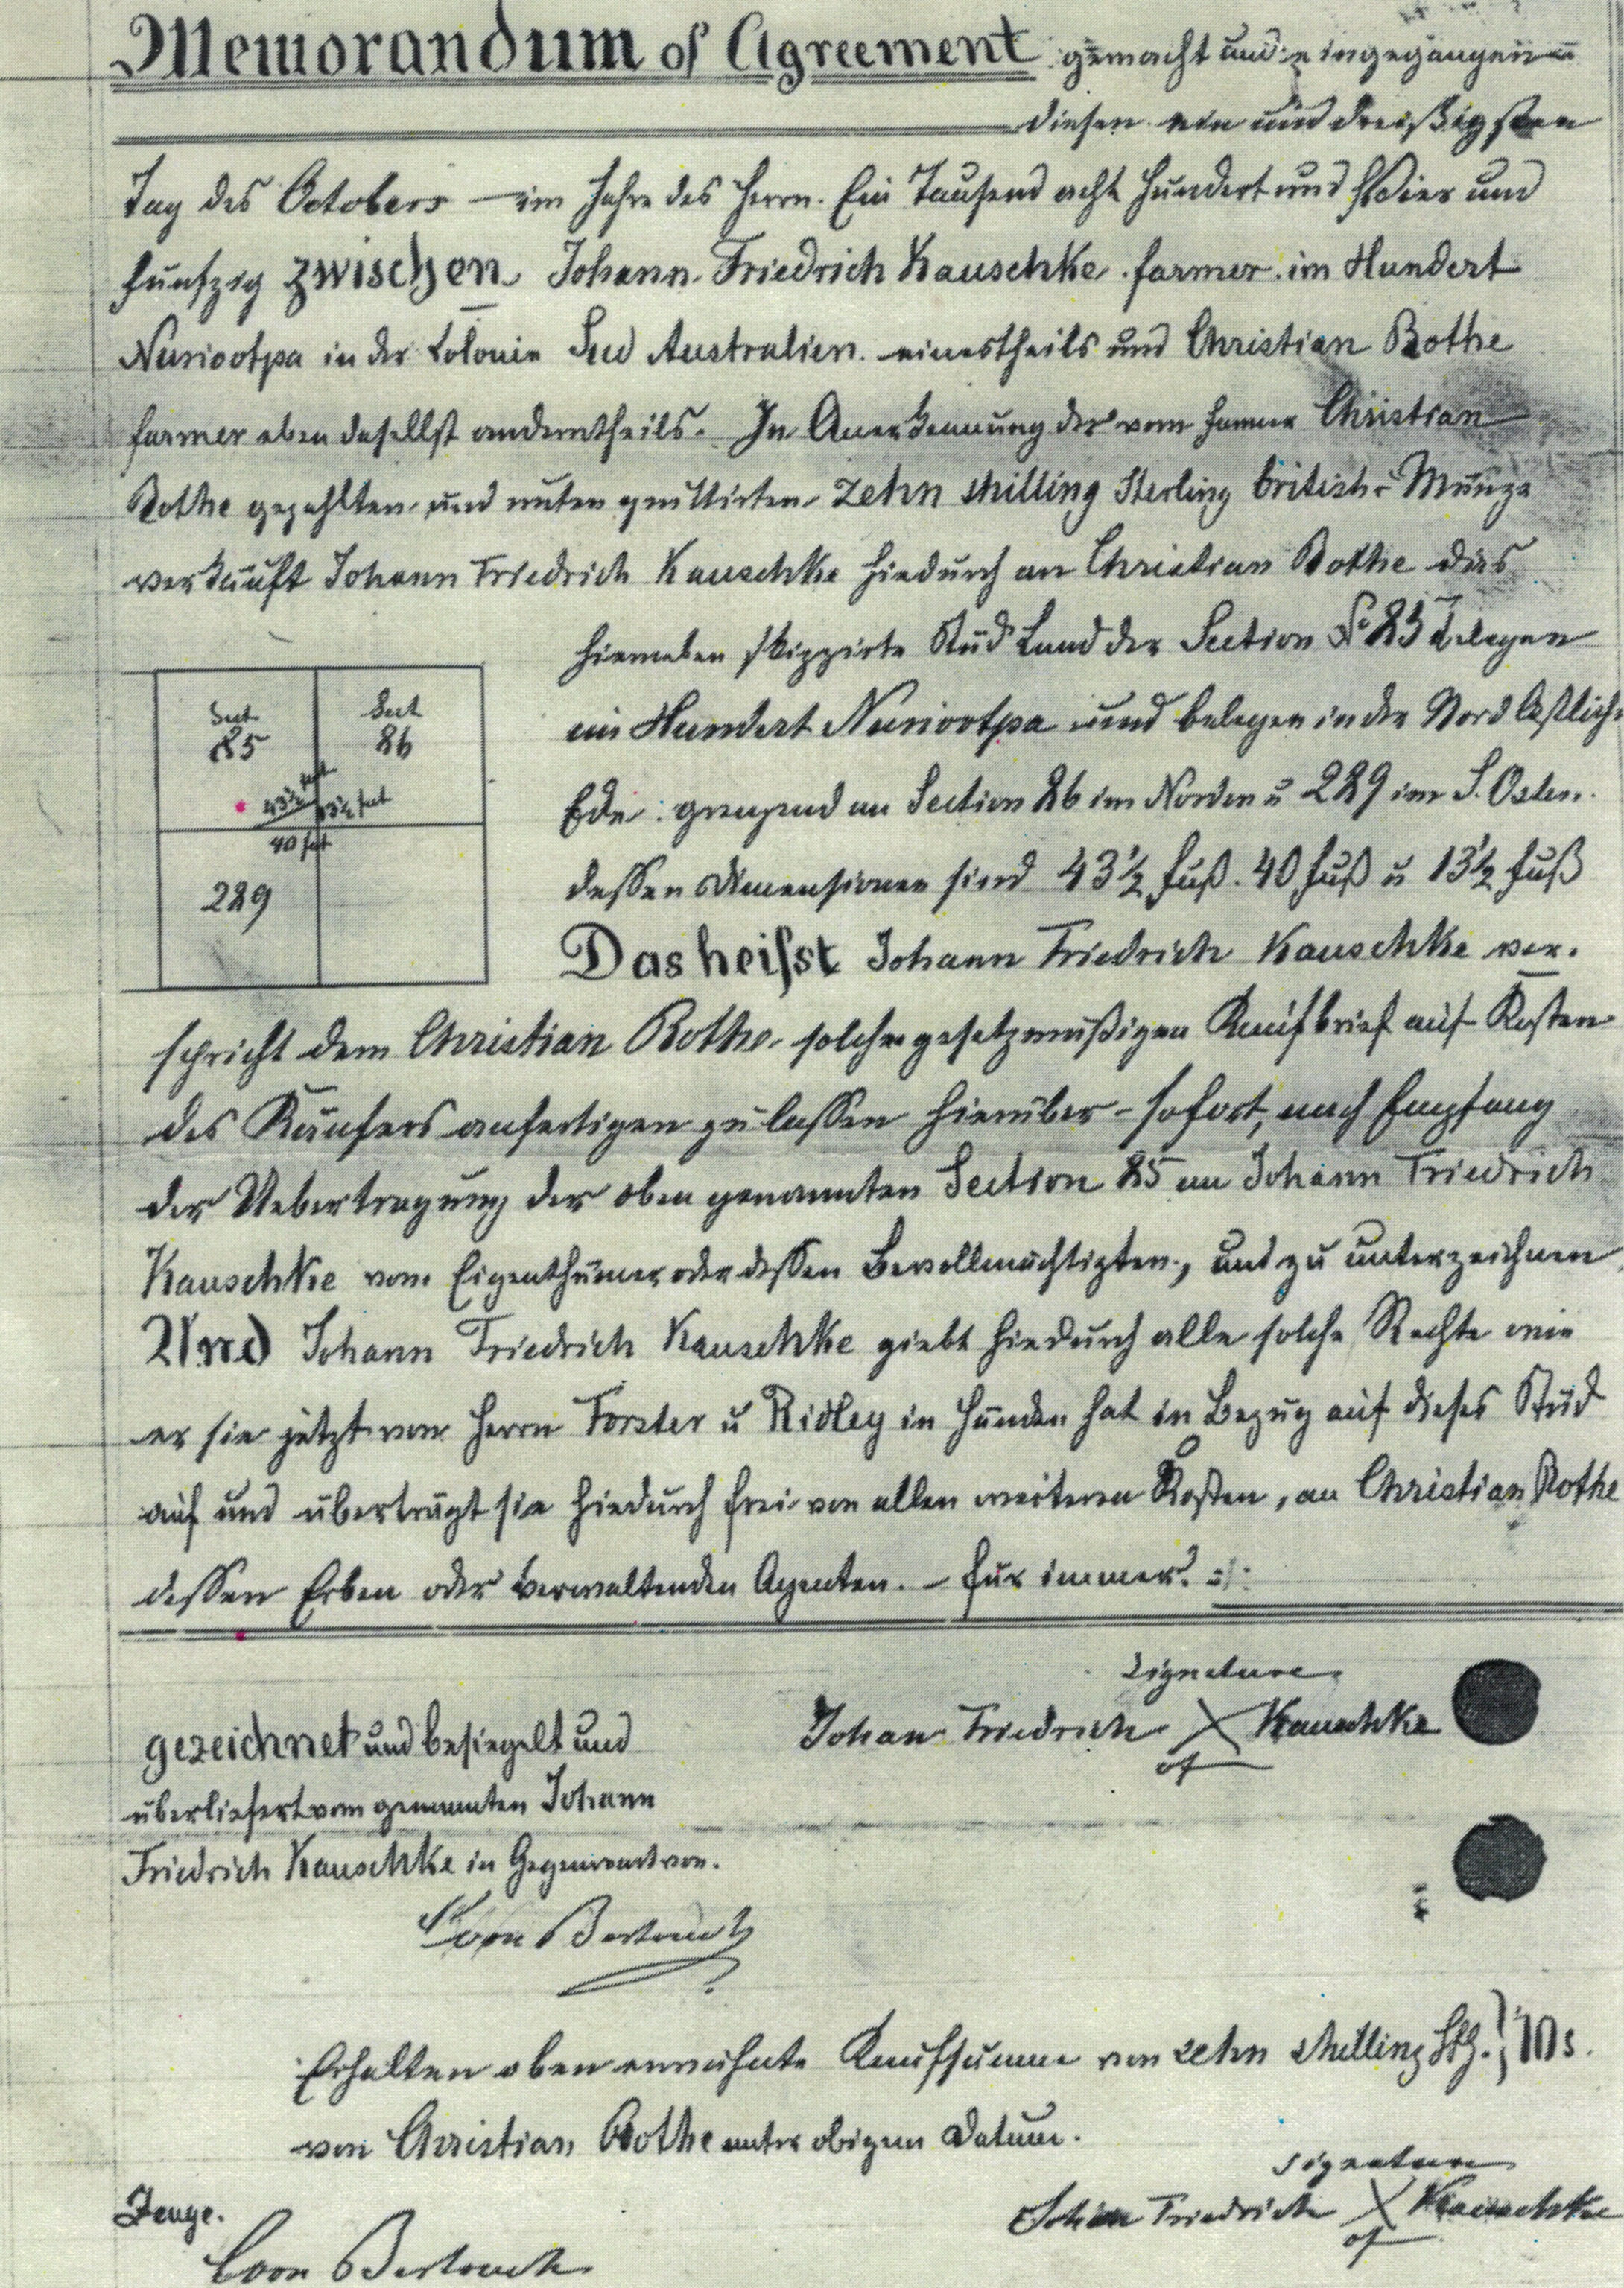 Memorandum of Agreement gemacht und eingegangen
diesen ein und dreißigsten
Tag des Octobers im Jahre des Herrn Ein Tausend acht Hundert und Vier und
fünfzig zwischen Johann Friedrich Kauschke farmer im Hundert
Nuriootpa in der Colonie Süd Australien einestheils und Christian Bothe
farmer eben daselbst anderntheils. In Anerkennung der vom farmer Christian
Bothe gezahlten und unten quittirten Zehn shilling Sterling british Münze
verkauft Johann Friedrich Kauschke hiedurch an Christian Bothe das
hierneben skizzirte Stück Land der Section No 85 Gelegen
im Hundert Nuriootpa und belegen in der Nord Östlich
Ecke grenzend an Section 86 im Norden u 289 im S. Osten.
dessen Dimensionen sind 43½ fuß. 40 fuß u 13½ fuß
Sect
85
Sect
86
43½ feet
13½ feet
40 feet
289
Das heisst Johann Friedrich Kauschke ver-
spricht dem Christian Bothe solchen gesetzmäßigen Kaufbrief auf Kosten
des Käufers anfertigen zu lassen hierüber - sofort, nach Empfang
der Uebertragung der oben genannten Section 85 an Johann Friedrich
Kauschke vom Eigenthümer oder dessen Bevollmächtigten, und zu unterzeichnen
Und Johann Friedrich Kauschke giebt hiedurch alle solche Rechte wie
er sie jetzt von Herrn Forster u Ridley in Händen hat in Bezug auf dieses Stück
auf und überträgt sie hiedurch frei von allen weiteren Kosten, an Christian Bothe
dessen Erben oder verwaltenden Agenten. - für immer.
signature
Johan Friedrich X Kauschke
of
gezeichnet und besiegelt und
überliefert vom genannten Johann
Friedrich Kauschke in Gegenwart von.
Erhalten oben erwähnte Kaufsumme von zehn shilling Stg. } 10s.
von Christian Bothe unter obigem Datum.
signature
Johan Friedrich X Kauschke
of
Zeuge.